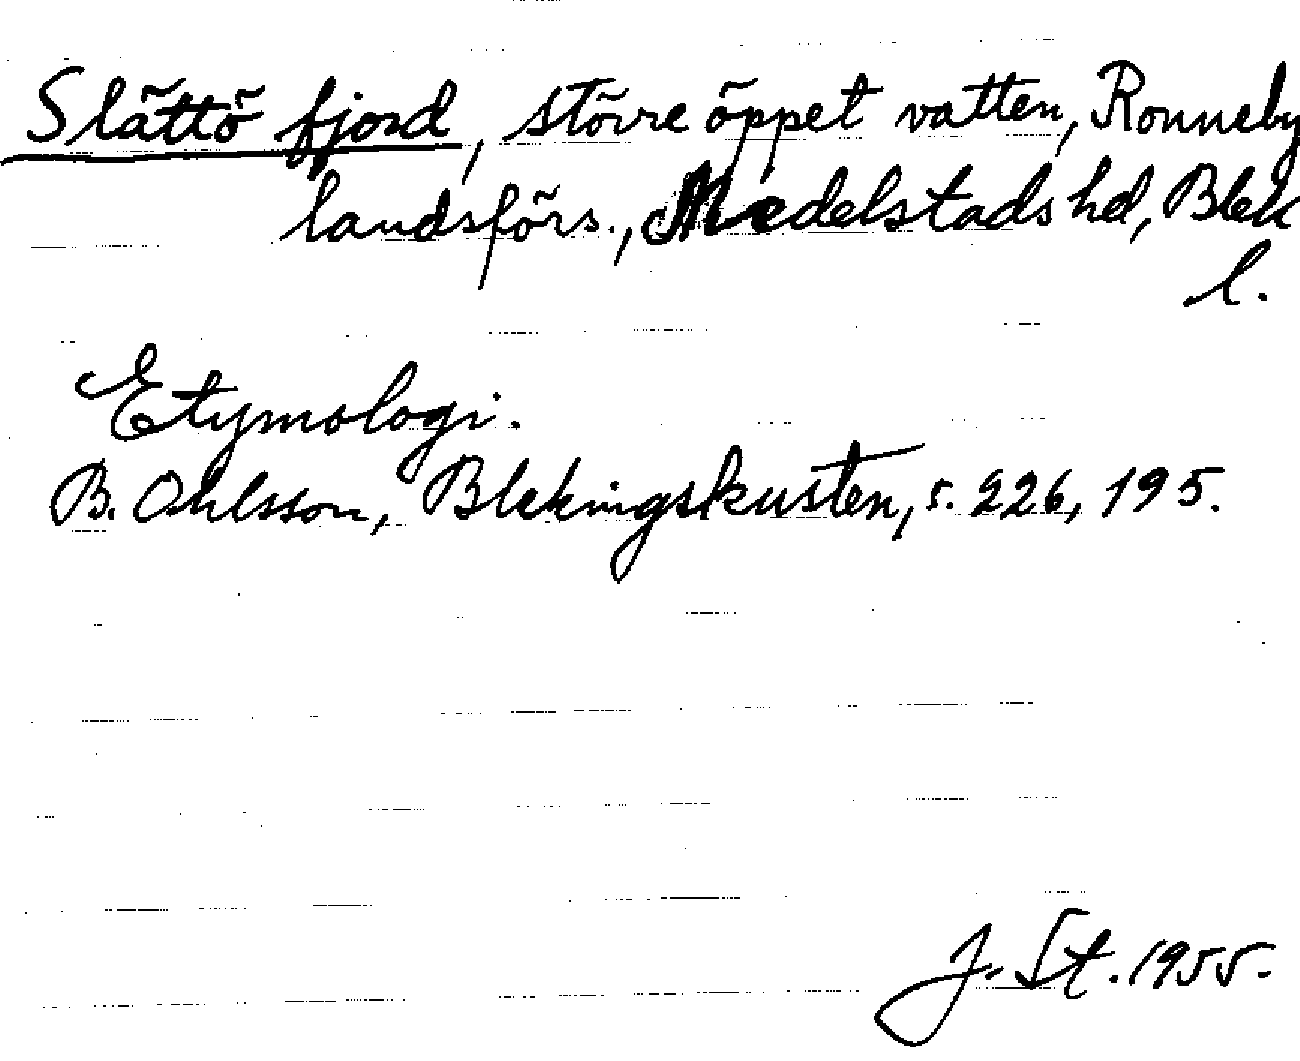 Slättö fjord, större öppet vatten, Ronneby
landsförs., Medelstads hd, Blek
l.
Etymologi.
B. Ohlsson, Blekingskusten, s. 226, 195.
J. St. 1955.